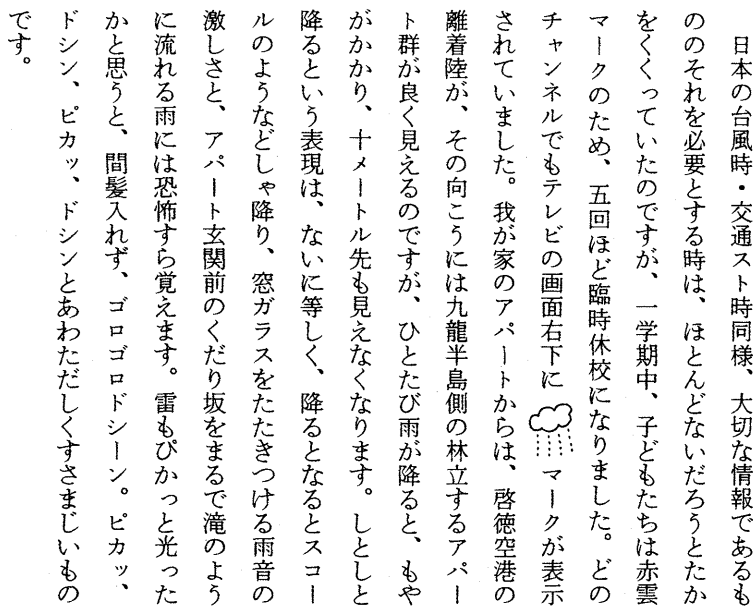 日本の台風時・交通スト時同様、大切な情報であるも
ののそれを必要とする時は、ほとんどないだろうとたか
をくくっていたのですが、一学期中、子どもたちは赤雲
マークのため、五回ほど臨時休校になりました。どの
チャンネルでもテレビの画面右下にマークが表示
されていました。我が家のアパートからは、啓徳空港の
離着陸が、その向こうには九龍半島側の林立するアパー
ト群が良く見えるのですが、ひとたび雨が降ると、もや
がかかり、十メートル先も見えなくなります。しとしと
降るという表現は、ないに等しく、降るとなるとスコー
ルのようなどしゃ降り、窓ガラスをたたきつける雨音の
激しさと、アパート玄関前のくだり坂をまるで滝のよう
に流れる雨には恐怖すら覚えます。雷もぴかっと光った
かと思うと、間髪入れず、ゴロゴロドシーン。ピカッ、
ドシン、ピカッ、ドシンとあわただしくすさまじいもの
です。